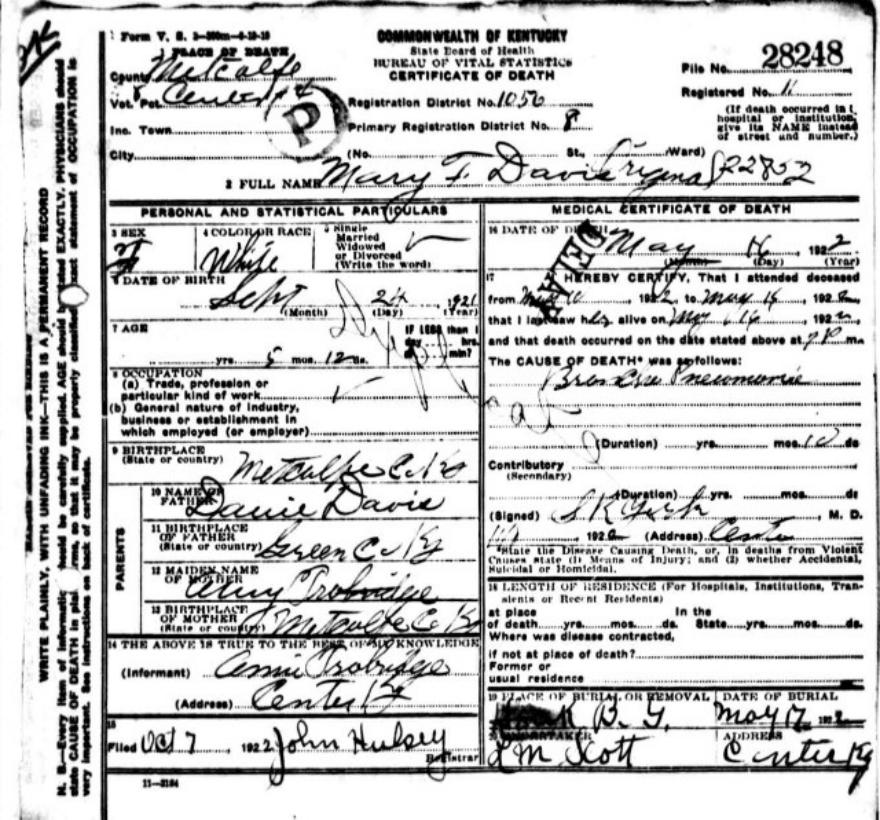 Form V. S.
1 PLACE OF DEATH
County Metcalfe
Vot. Pct. Center
Inc. Town
City
COMMONWEALTH OF KENTUCKY
State Board of Health
BUREAU OF VITAL STATISTICS
CERTIFICATE OF DEATH
Registration District No. 1056
Primary Registration District No. 8
(No. St., Ward)
File No. 28248
Registered No. 11
(If death occurred in
hospital or institution,
give its NAME instead
of street and number.)
P
2 FULL NAME Mary F. Davis Original 22852
PERSONAL AND STATISTICAL PARTICULARS
3 SEX
F
4 COLOR OR RACE
White
5 Single
Married
Widowed
or Divorced
(Write the word)
6 DATE OF BIRTH
Sept 24, 1921
(Month) (Day) (Year)
7 AGE
yrs. 5 mos. 12 ds.
IF LESS than 1
day hrs.
min?
8 OCCUPATION
(a) Trade, profession or
particular kind of work
(b) General nature of industry,
business or establishment in
which employed (or employer)
9 BIRTHPLACE
(State or country) Metcalfe Co Ky
PARENTS
10 NAME OF
FATHER Davis
11 BIRTHPLACE
OF FATHER
(State or country) Green Co Ky
12 MAIDEN NAME
OF MOTHER Trobridge
13 BIRTHPLACE
OF MOTHER
(State or country) Metcalfe Co Ky
14 THE ABOVE IS TRUE TO THE BEST OF MY KNOWLEDGE
(Informant) Trobridge
(Address) Center Ky
15
Filed Oct 7 1922 John Hulsey
Registrar
11-3184
MEDICAL CERTIFICATE OF DEATH
16 DATE OF DEATH
May 16 1922
(Month) (Day) (Year)
DELAY
17 I HEREBY CERTIFY, That I attended deceased
from May 10, 1922 to May 16, 192
that I last saw her alive on May 16, 192
and that death occurred on the date stated above at 7 P m.
The CAUSE OF DEATH* was as follows:
Broncho Pneumonia
(Duration) yrs. mos. 10 ds
Contributory
(Secondary)
(Duration) yrs. mos. ds
(Signed) S K York, M. D.
192 (Address) Center
*State the Disease Causing Death, or, in deaths from Violent
Causes state (1) Means of Injury; and (2) whether Accidental,
Suicidal or Homicidal.
18 LENGTH OF RESIDENCE (For Hospitals, Institutions, Tran-
sients or Recent Residents)
at place In the
of death yrs. mos. ds. State yrs. mos. ds.
Where was disease contracted,
if not at place of death?
Former or
usual residence
19 PLACE OF BURIAL OR REMOVAL
B. G.
DATE OF BURIAL
May 17 192
20 UNDERTAKER
L M Scott
ADDRESS
Center Ky
WRITE PLAINLY, WITH UNFADING INK—THIS IS A PERMANENT RECORD
N. B.—Every item of information should be carefully supplied. AGE should be stated EXACTLY. PHYSICIANS should
state CAUSE OF DEATH in plain terms, so that it may be properly classified. Exact statement of OCCUPATION is
very important. See instructions on back of certificate.